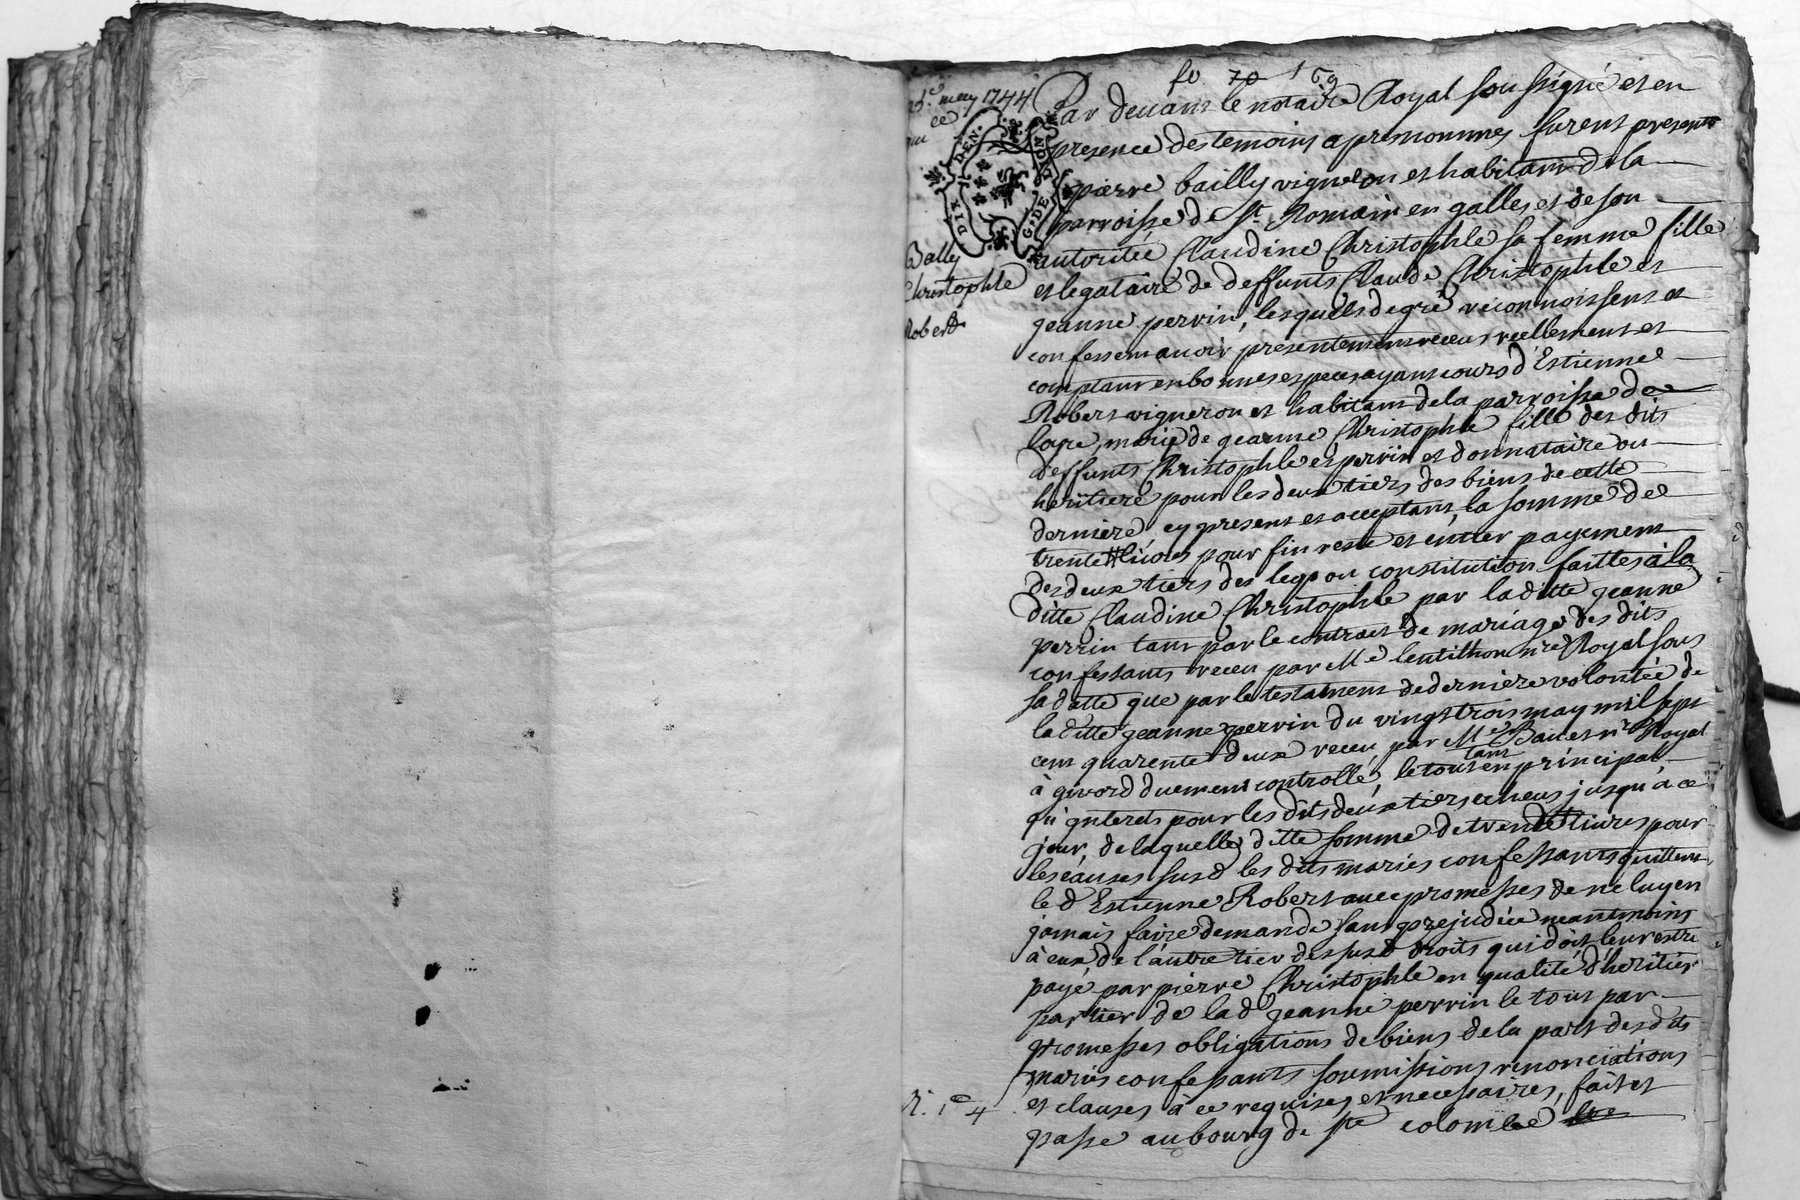 fo 70 169
may 1744
DIX DEN.
G. DE LYON
Bally
Christophle
Robert
Par devant le notaire Royal soussigné et en
presence des temoins apres nommes furent presents
pierre bailly vigneron et habitant de la
parroisse de St Romain en galles, et de son
autoritée Claudine Christophle sa femme fille
et legataire de deffunts Claude Christophle et
jeanne perrin, lesquels de gré reconnoissent et
confessent avoir presentement receus reellement et
comptant en bonnes especes ayant cours d'Estienne
Robert vigneron et habitant de la parroisse de
loire, marié de jeanne Christophle fille des dits
deffunts Christophle et perrin et donnataire ou
heritiere pour les deux tiers des biens de cette
derniere, cy present et acceptant, la somme de
trente livres pour fin reste et entier payement
des deux tiers des legs ou constitution faittes à la
ditte Claudine Christophle par laditte jeanne
perrin tant par le contract de mariage des dits
confessants receu par Me lentillhon nre Royal sous
sa datte que par le testament de derniere volontée de
laditte jeanne perrin du vingt trois may mil sept
cent quarente deux receu par Me Bauet nre Royal
à givord duement controllé, le tout tant en principal
qu'interets pour les dits deux tiers echeus jusqu'à ce
jour, de laquelle ditte somme de trente livres pour
les causes susd les dits mariés confessants quittent
le d Estienne Robert avec promesses de ne luy en
jamais faire demande sans prejudice neantmoins
à eux de l'autre tier des susd droits qui doit leur estre
payé par pierre Christophle en qualité d'heritier
par tier de lad jeanne perrin le tout par
promesses obligations de biens de la part des dits
mariés confessants soumissions renonciations
et clauses à ce requises et necessaires, fait et
passé au bourg de ste colombe